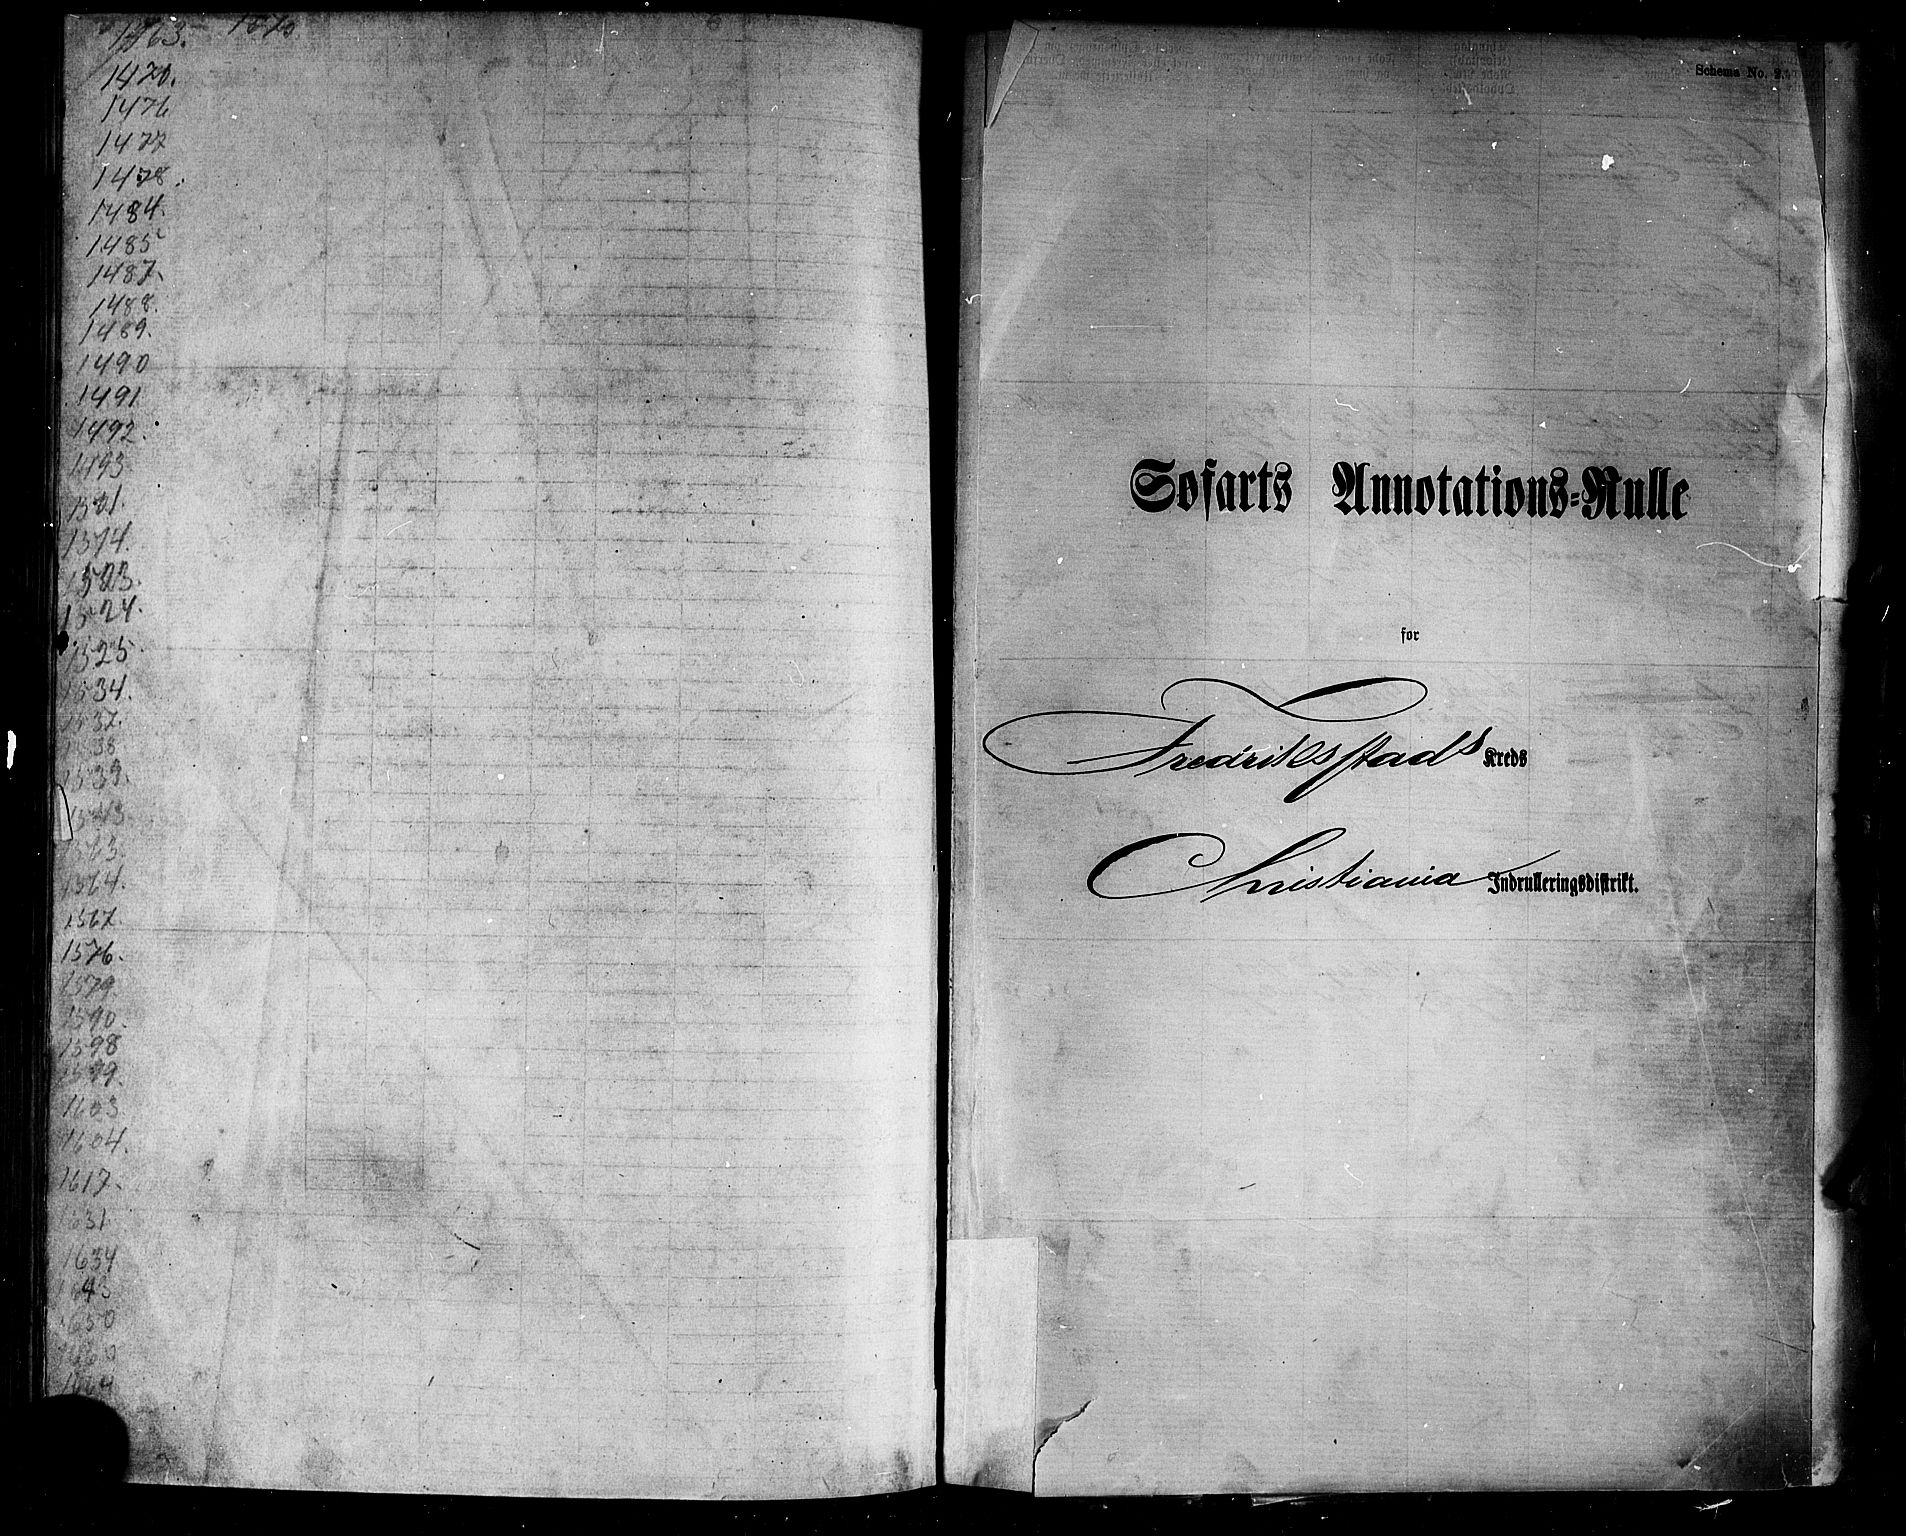 1463. 1670
1470.
1476
1477
1478.
1484.
1485
1487.
1488.
1489.
1490
1491
1492.
1493
1501.
1514.
1523.
1524.
1525
1534.
1537.
1538
1539.
1543.
1563.
1564.
1567.
1576.
1579.
1590.
1598
1599.
1603
1604.
1617.
1631
1634
1643
1650
1660
Schema No. 2.
Søfarts Annotations-Rulle
for
Fredriksstads Kreds
Christiania Indrulleringsdistrikt.